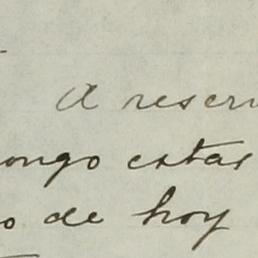 A reser
ongo estas
o de hoy